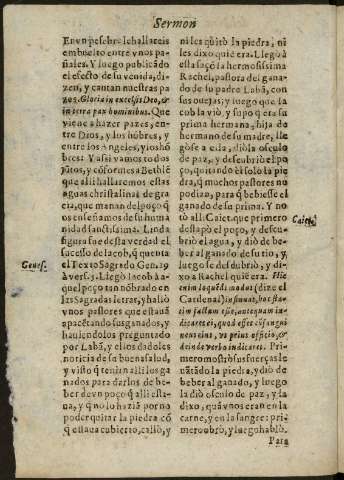 Sermon
En vn pesebre le hallareis
embuelto entre vnos pa-
ñales. Y luego publicãdo
el efecto de su venida, di-
zen, y cantan nuestras pa
zes. Gloria in excelsis Deo, &
in terra pax hominibus. Que
viene a hazer pazes, en-
tre Dios, y los hõbres, y
entre los Angeles, y los hõ
bres: Y assi vamos todos
jũtos, y cõformes a Bethlẽ
que alli hallaremos estas
aguas christalinas de gra-
cia, que manan del poço q̃
os enseñamos de su huma
nidad sanctissima. Linda
figura fue desta verdad el
successo de Iacob, q̃ quenta
Genes.
el Texto Sagrado Gen. 29
à vers. 3. Llegò Iacob à a-
quel poço tan nõbrado en
las Sagradas letras, y hallò
vnos pastores que estauã
apacẽtando sus ganados, y
hauiendolos preguntado
por Labã, y ellos dadoles
noticia de su buena salud,
y visto q̃ tenian alli los ga
nados para darlos de be-
ber de vn poço q̃ alli esta-
ua, y q̃ no lo haziã por no
poder quitar la piedra cõ
q̃ estaua cubierto, callò, y
ni les quitò la piedra, ni
les dixo quiẽ era. Llegò à
esta saçõ la hermosissima
Rachel, pastora del gana-
do de su padre Labã, con
sus ouejas, y luego que Ia
cob la viò, y supo q̃ era su
prima hermana, hija de
hermano de su madre, lle
gòse a ella, diòla osculo
de paz, y descubriò el po
ço, quitando èl solo la pie
dra, q̃ muchos pastores no
podian, para q̃ bebiesse el
ganado de su prima. Y no
tò alli Caiet. que primero
Caiet.
destapò el poço, y descu-
briò el agua, y diò de be-
ber al ganado de su tio, y
luego se descubriò, y di-
xo a Rachel quiẽ era. Hic
enim loquẽdi modus (dize el
Cardenal) insinuat, hoc sta-
tim factum esse, antequam in-
dicaret ei, quod esset cõsangui
neus eius, vt prius officio, &
deinde verbo indicaret. Pri-
mero mostrò sus fuerças le
uãtãdo la piedra, y diò de
beber al ganado, y luego
la diò osculo de paz, y la
dixo, quã vnos eran en la
carne, y en la sangre: pri-
mero obrò, y luego hablò.
Para